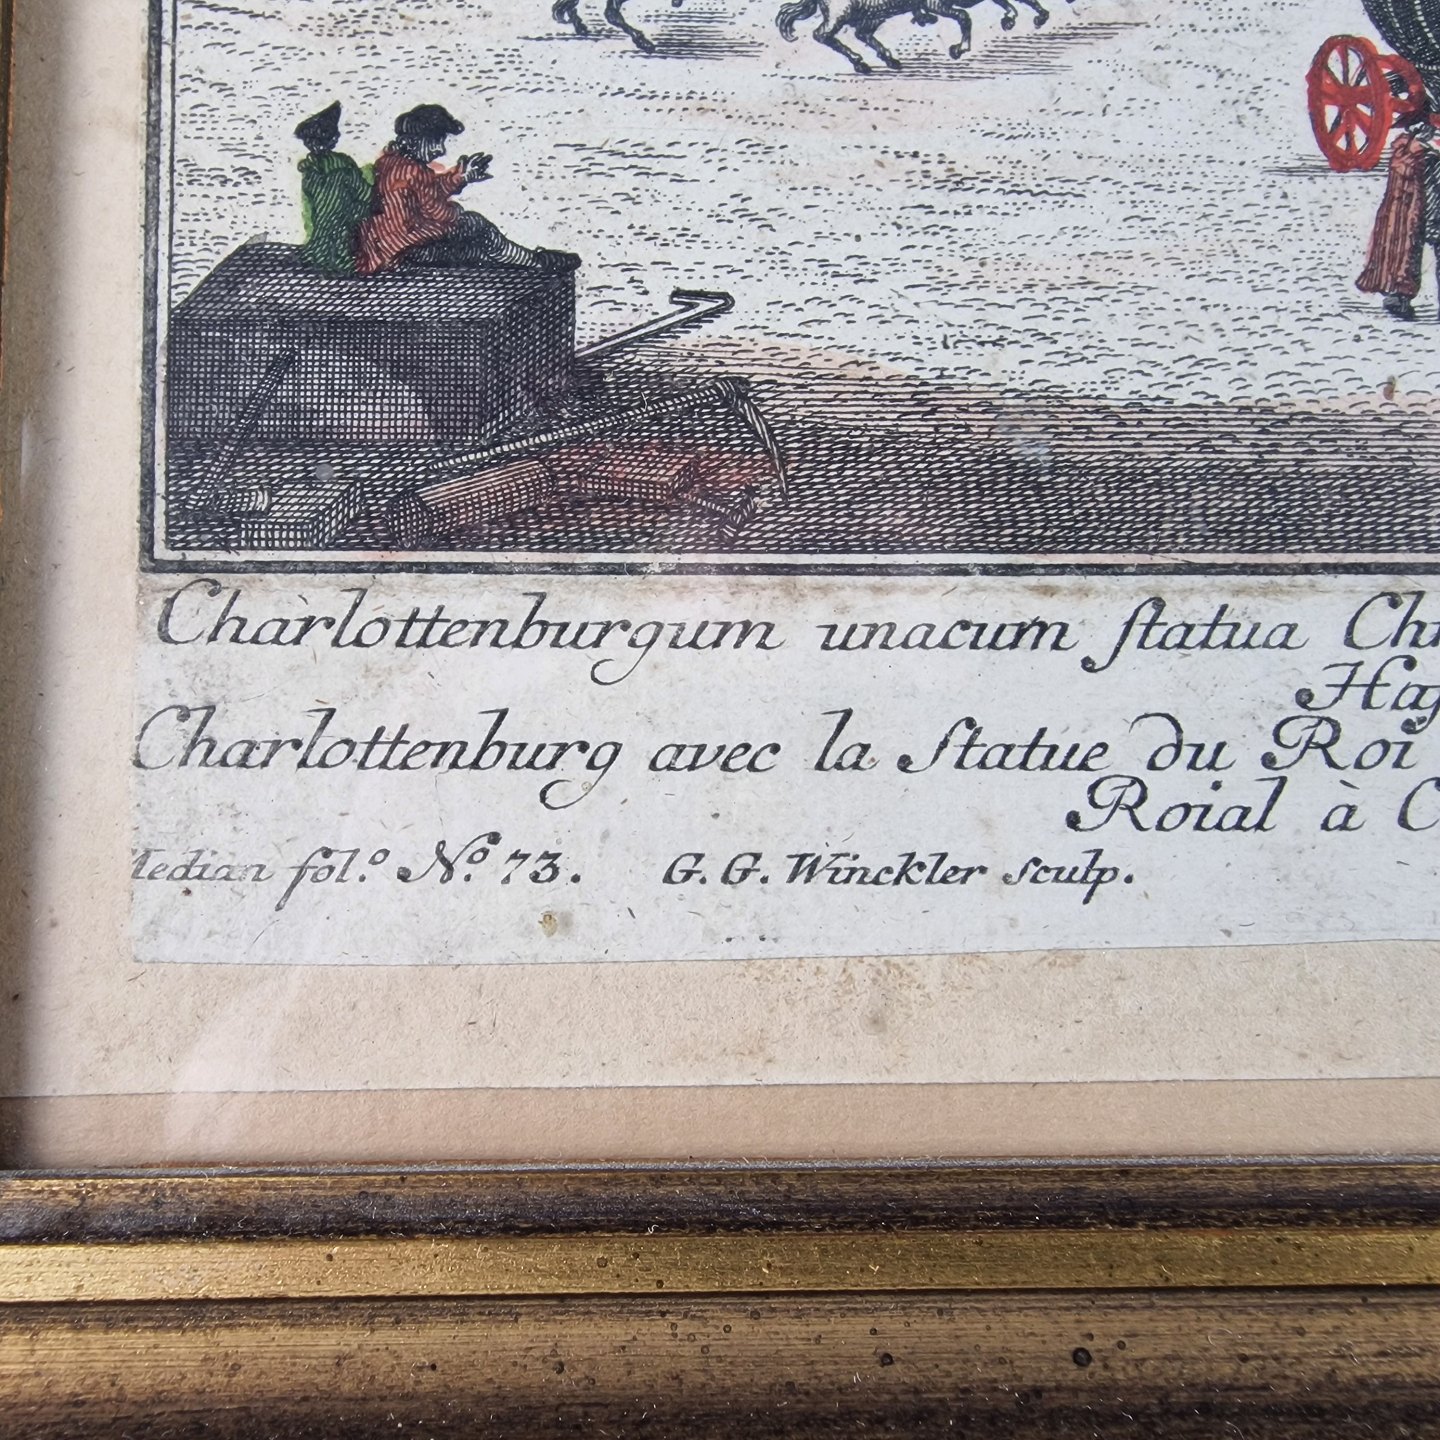 Charlottenburgum unacum statua
Charlottenburg avec la Statue du Roi
Roial à
fol.º Nº. 73. G. G. Winckler sculp.